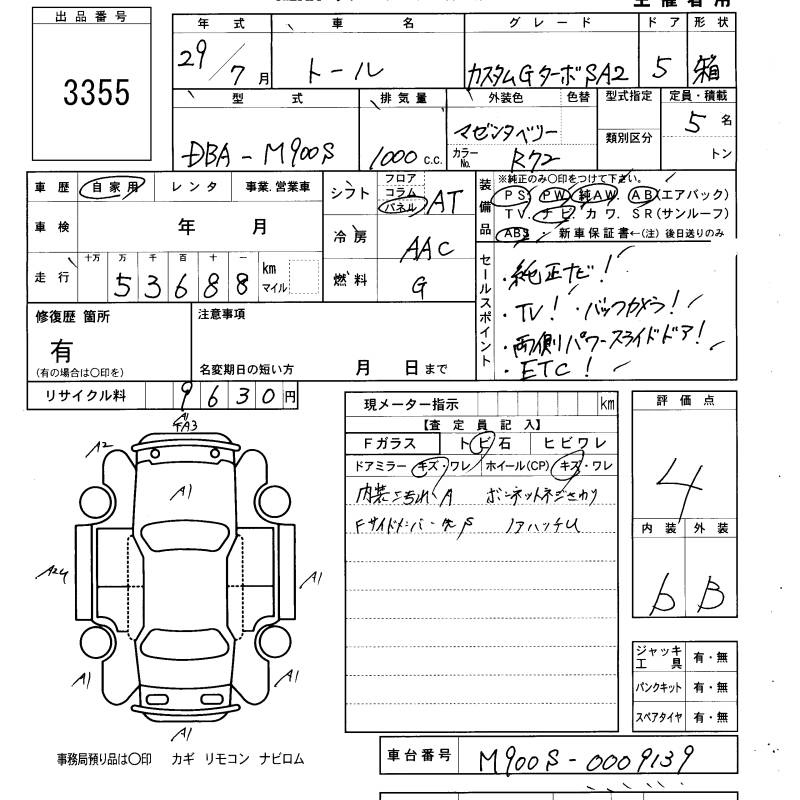 出品番号
3355
年式 車名 グレード ドア 形状
29/7月 トール カスタムGターボSA2 5 箱
型式 排気量 外装色 色替 型式指定 定員・積載
DBA-M900S 1000 c.c. マゼンタベリー 5名
カラーNo. R72 類別区分 トン
車歴 自家用 レンタ 事業.営業車
車検 年 月
走行 十万 万 千 百 十 一
53688 km マイル
シフト フロア コラム パネル AT
冷房 AAC
燃料 G
装備品 ※純正のみ○印をつけて下さい。
PS. PW. 純AW. AB(エアバック)
TV. ナビ. カワ. SR(サンルーフ)
ABS ・ 新車保証書←(注) 後日送りのみ
セールスポイント
・純正ナビ!
・TV! ・バックカメラ!
・両側パワースライドドア!
・ETC!
修復歴 箇所
有
(有の場合は○印を)
注意事項
名変期日の短い方 月 日まで
リサイクル料 9630円
現メーター指示 km
【査定員記入】
Fガラス トビ石 ヒビワレ
ドアミラー キズ・ワレ ホイール(CP) キズ・ワレ
内装ごちれA ボンネットネジさわり
FサイドメンバーキS リアハッチU
評価点
4
内装 外装
b B
ジャッキ工具 有・無
パンクキット 有・無
スペアタイヤ 有・無
FA3
A2
A1
A1
A1
A1
A1
事務局預り品は○印 カギ リモコン ナビロム
車台番号 M900S-0009139